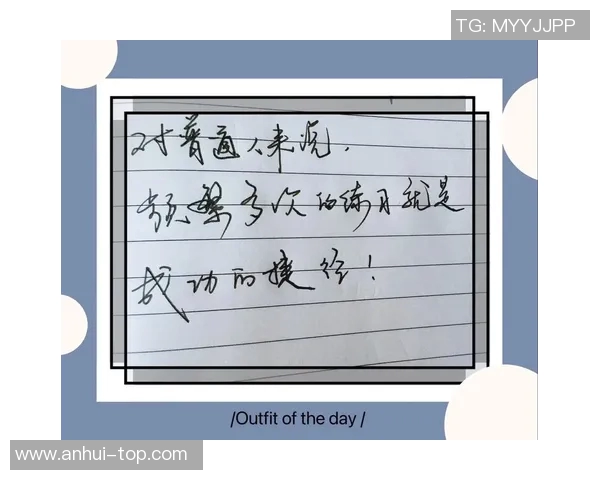 TG: MYYJJPP
对普通人来说.
频繁多次的练习就是
成功的捷径!
/Outfit of the day /
www.anhui-top.com